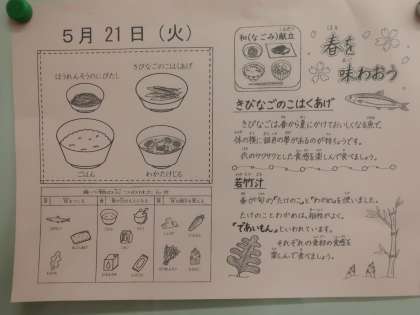 5月21日（火）
きびなごのこはくあげ
ほうれんそうのにびたし
ごはん
わかたけじる
和(なごみ)献立
春を
味わおう
きびなごのこはくあげ
きびなごは、春から夏にかけておいしくなる魚で、
体の横に銀色の帯があるのが特ちょうです。
衣のサクサクとした食感を楽しんで食べましょう。
若竹汁
春が旬の「たけのこ」と「わかめ」を使いました。
たけのことわかめは、相性がよく、
「であいもん」といわれています。
それぞれの食材の食感を
楽しんで食べましょう。